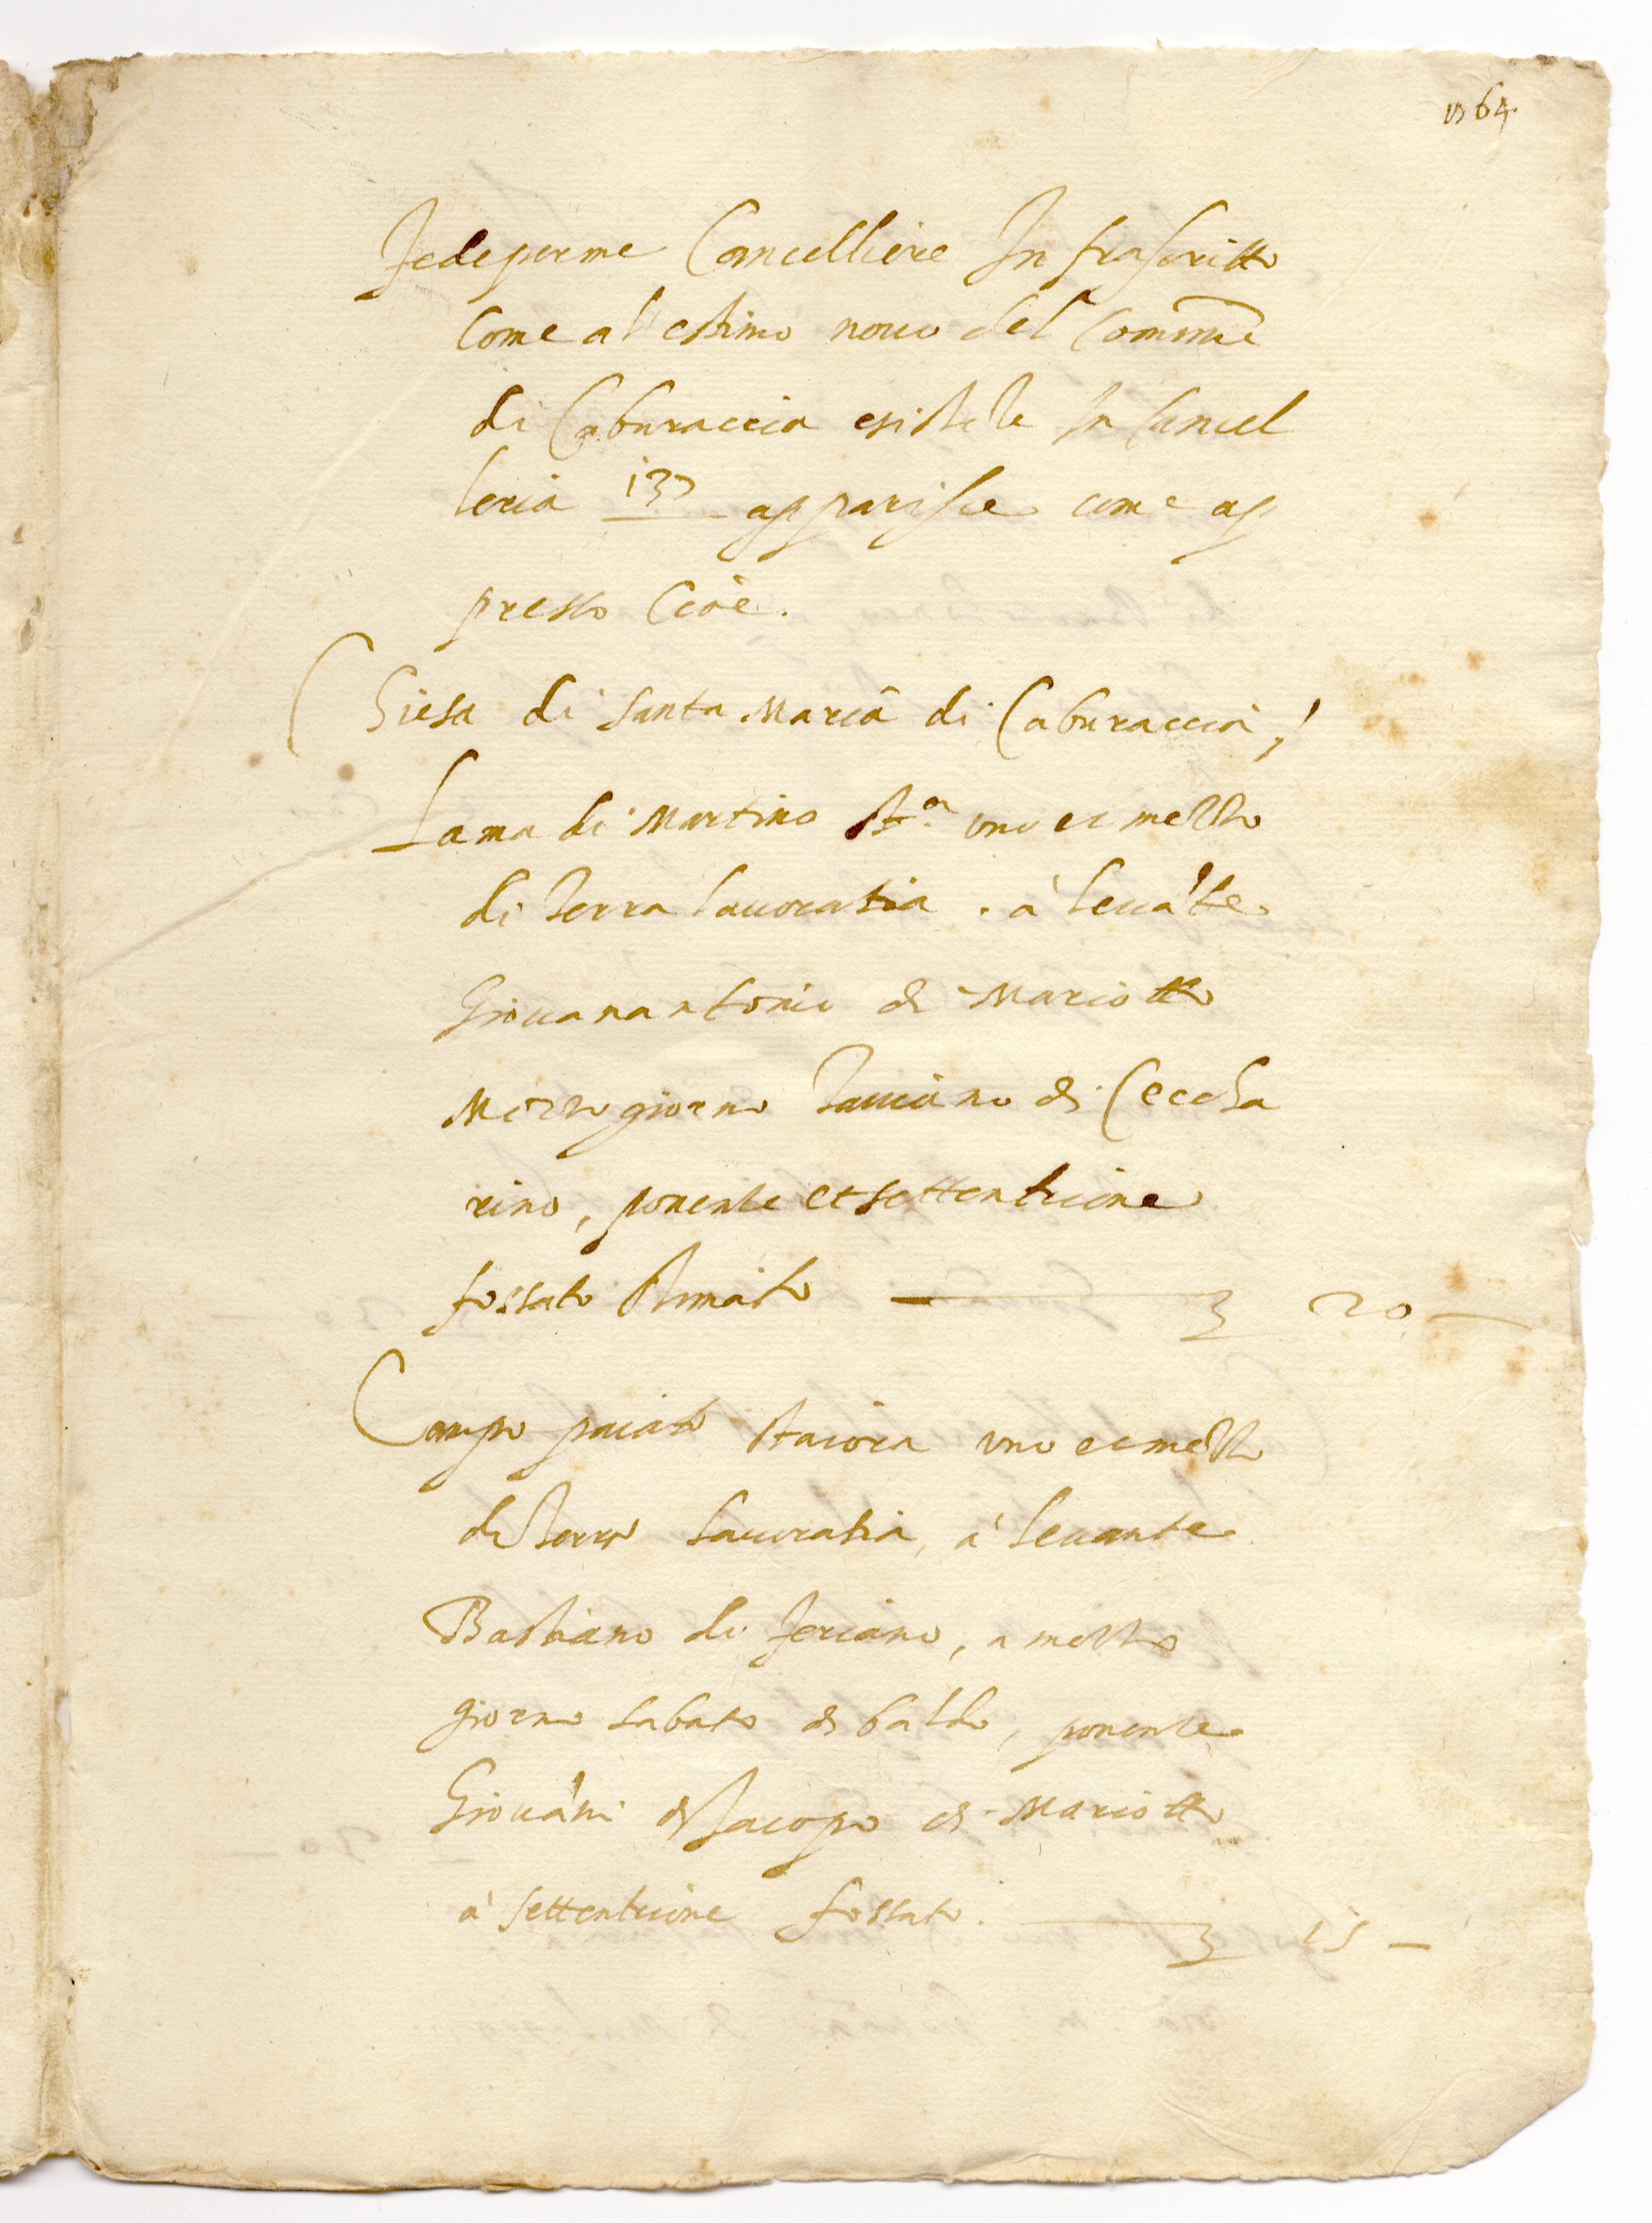 1564
Fede per me Cancelliere Infrascritto
Come all estimo novo del Commune
di Caburaccia esistete In Cancel
leria 137 apparisce come ap
presso Cioè.
Chiesa di Santa Maria di Caburaccia,
Lama di Martino sta.ᵃ uno et mezzo
di Terra lavoratia . à levate
Giovanantonio di Mariotto
Mezzogiorno di Ceccha
rino, ponente et settentrione
fossato 3 20
Campo staiora uno et mezzo
di Terra lavoratia, à levante
Bastiano di Feriano, a mezzo
giorno Sabato di baldo, ponente
Giovāni di Jacopo di Mariotto
à settentrione fossato. 3 15